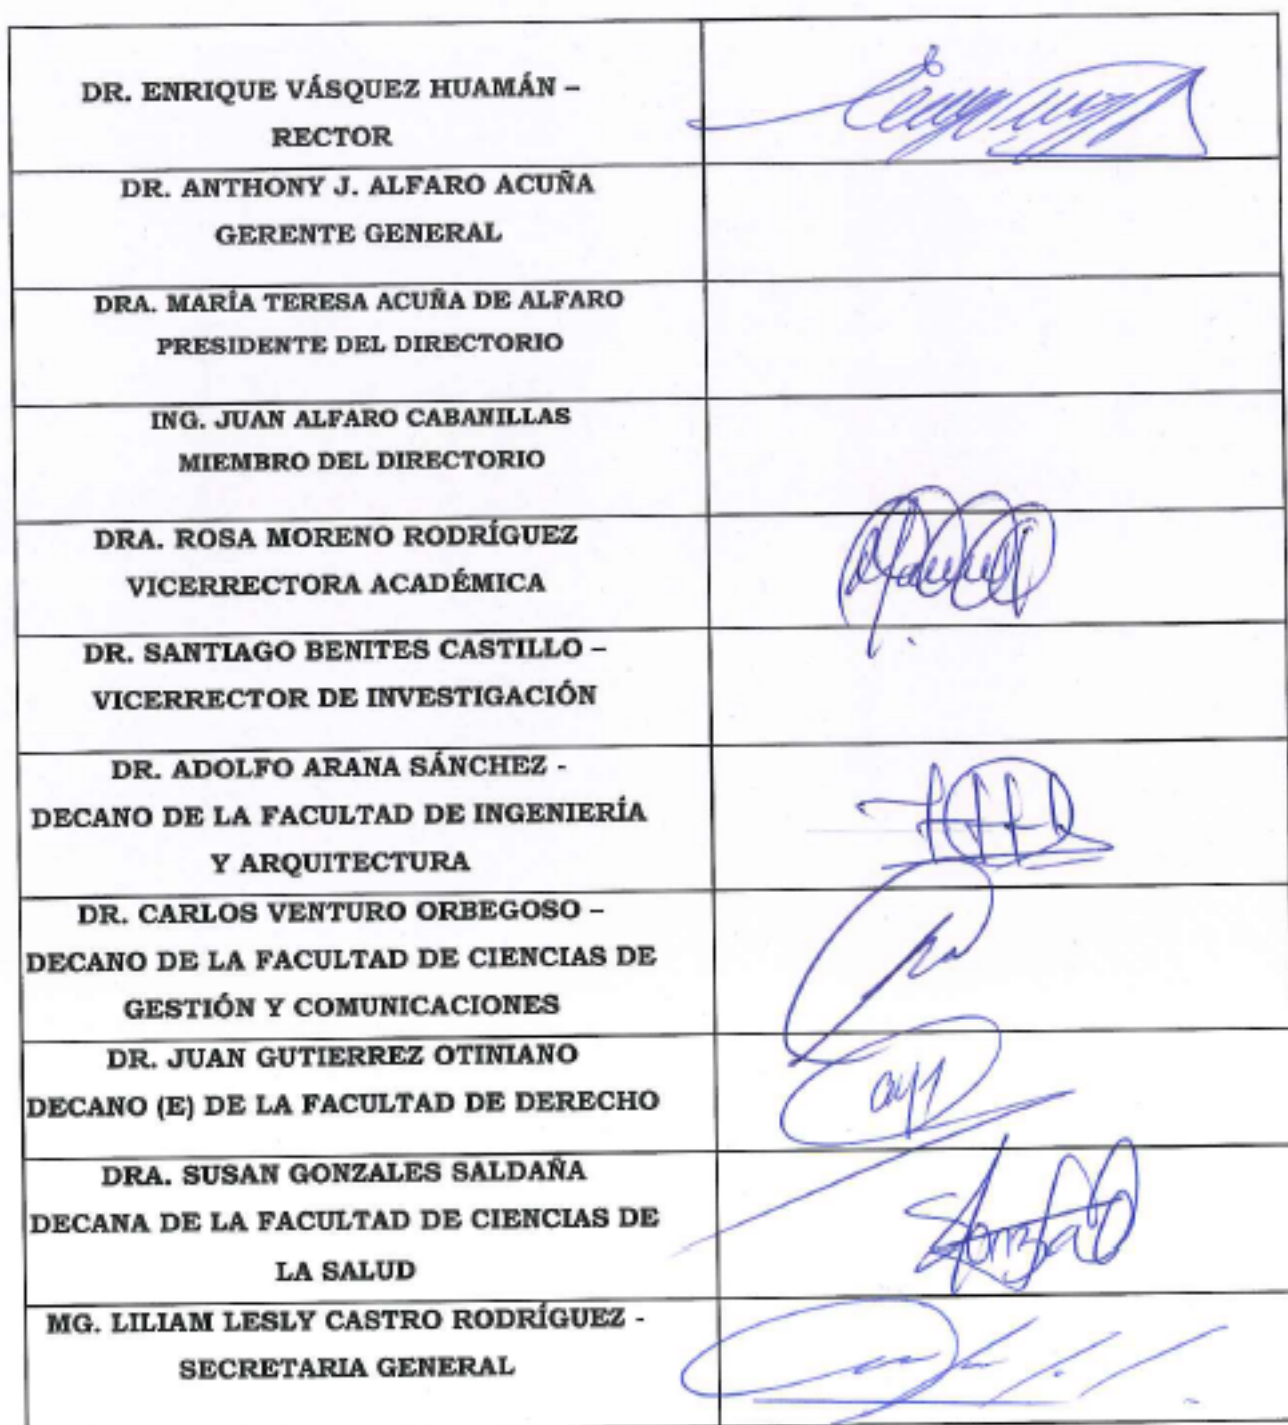 DR. ENRIQUE VÁSQUEZ HUAMÁN –
RECTOR
DR. ANTHONY J. ALFARO ACUÑA
GERENTE GENERAL
DRA. MARÍA TERESA ACUÑA DE ALFARO
PRESIDENTE DEL DIRECTORIO
ING. JUAN ALFARO CABANILLAS
MIEMBRO DEL DIRECTORIO
DRA. ROSA MORENO RODRÍGUEZ
VICERRECTORA ACADÉMICA
DR. SANTIAGO BENITES CASTILLO –
VICERRECTOR DE INVESTIGACIÓN
DR. ADOLFO ARANA SÁNCHEZ -
DECANO DE LA FACULTAD DE INGENIERÍA
Y ARQUITECTURA
DR. CARLOS VENTURO ORBEGOSO –
DECANO DE LA FACULTAD DE CIENCIAS DE
GESTIÓN Y COMUNICACIONES
DR. JUAN GUTIERREZ OTINIANO
DECANO (E) DE LA FACULTAD DE DERECHO
DRA. SUSAN GONZALES SALDAÑA
DECANA DE LA FACULTAD DE CIENCIAS DE
LA SALUD
MG. LILIAM LESLY CASTRO RODRÍGUEZ -
SECRETARIA GENERAL